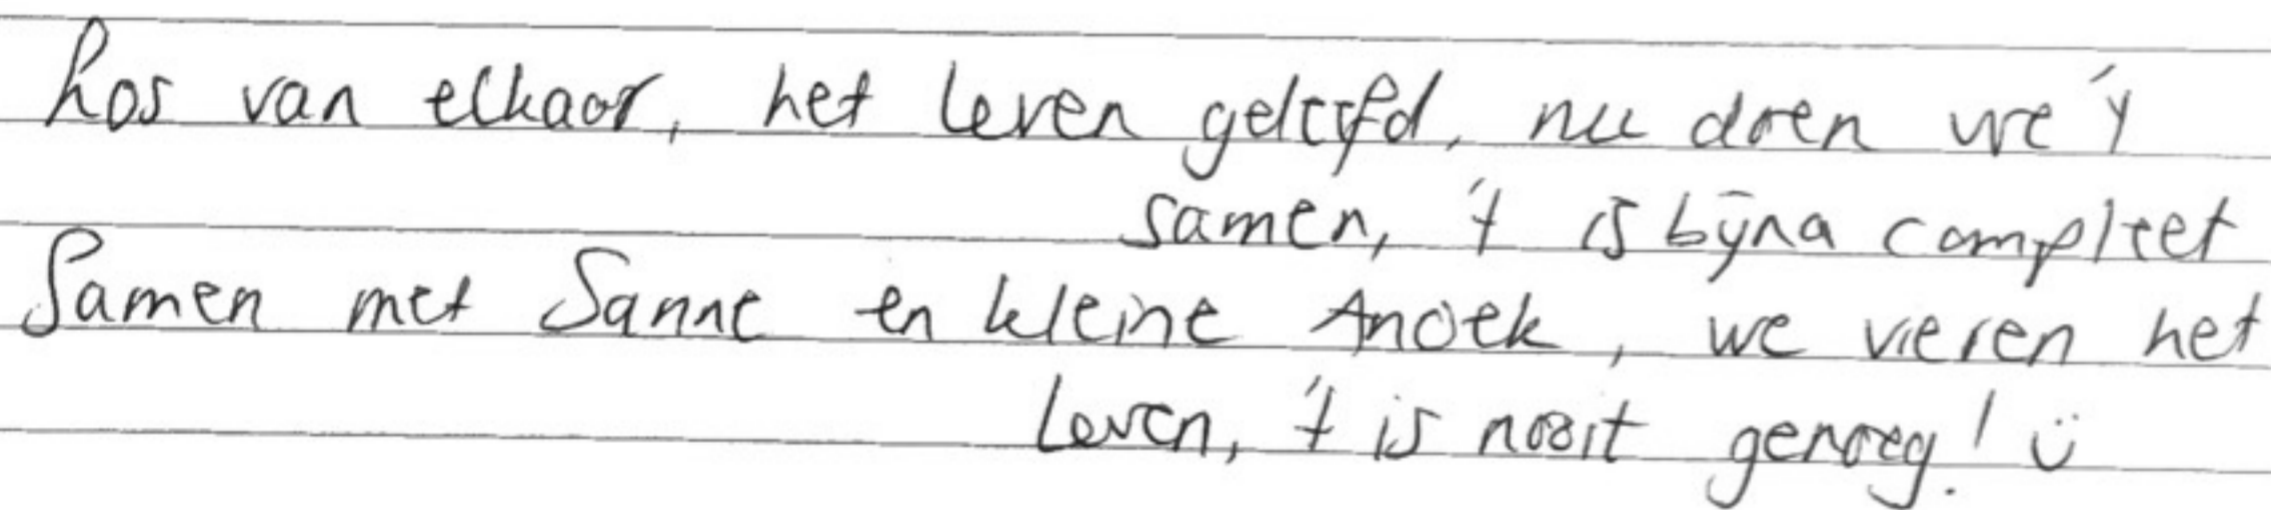 Los van elkaar, het leven geleefd, nu doen we 't
samen, 't is bijna compleet
Samen met Sanne en kleine Anoek, we vieren het
leven, 't is nooit genoeg! ü